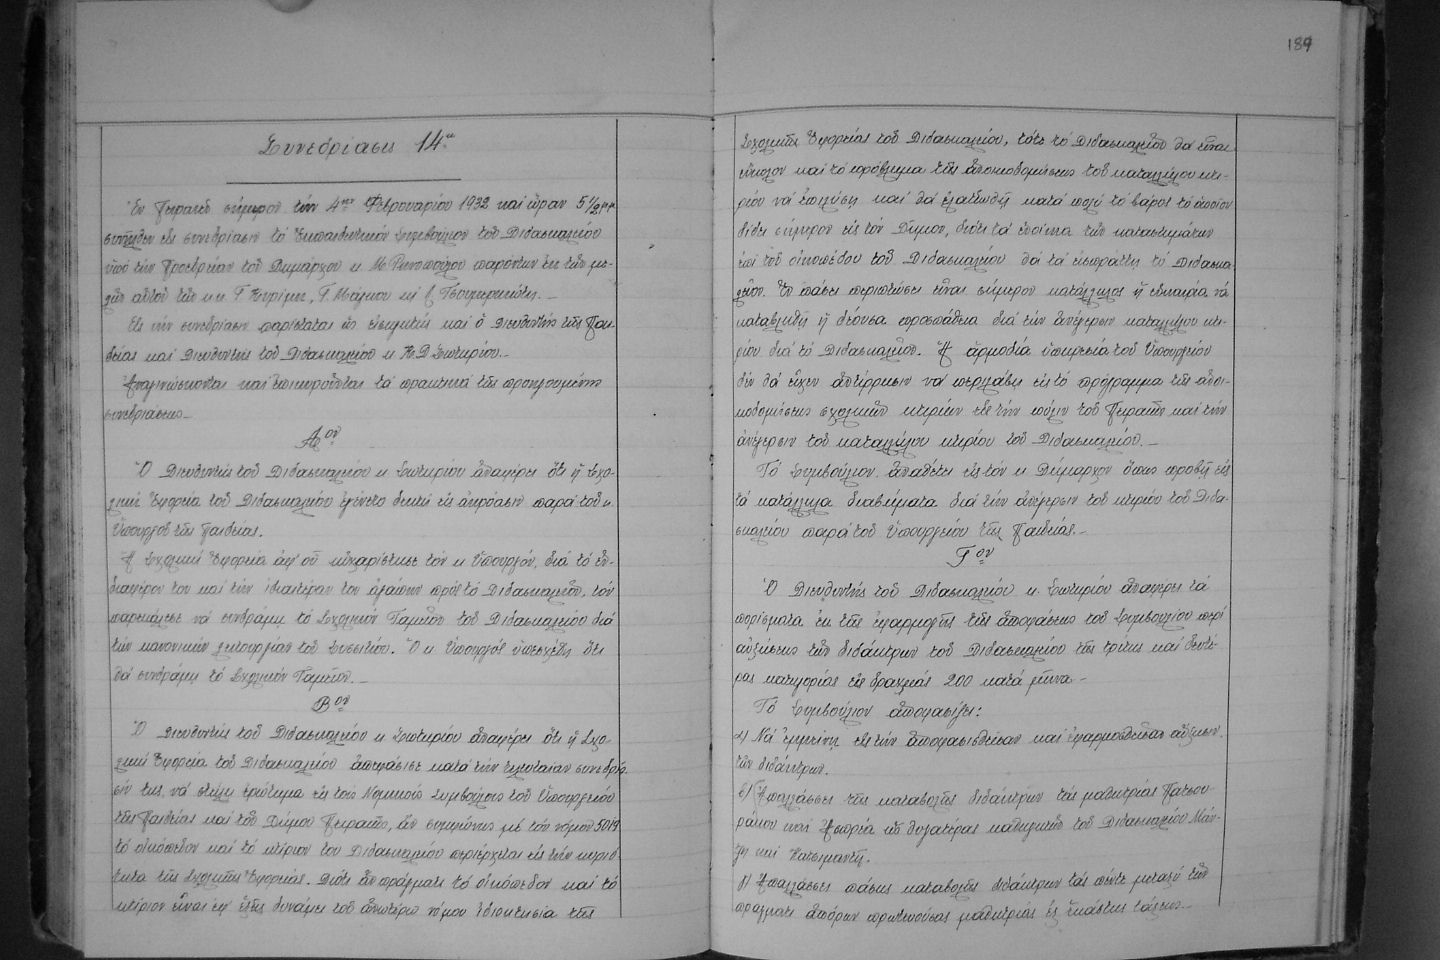 189
Συνεδρίασις 14η
Ἐν Πειραιεῖ σήμερον τὴν 4ην Φεβρουαρίου 1932 καὶ ὥραν 5 1/2 μ.μ.
συνῆλθεν εἰς συνεδρίασιν τὸ Ἐκπαιδευτικὸν Συμβούλιον τοῦ Διδασκαλείου
ὑπὸ τὴν Προεδρείαν τοῦ Δημάρχου κ. Μ. Ρινοπούλου παρόντων ἐκ τῶν με-
λῶν αὐτοῦ τῶν κ.κ. Γ.
Εἰς τὴν συνεδρίασιν παρίσταται ὡς εἰσηγητὴς καὶ ὁ Διευθυντὴς τῆς Παι-
δείας καὶ Διευθυντὴς τοῦ Διδασκαλείου κ. Κ. Δ. Σωτηρίου.-
Ἀναγινώσκονται καὶ ἐπικυροῦνται τὰ πρακτικὰ τῆς προηγουμένης
συνεδριάσεως.-
Αον
Ὁ Διευθυντὴς τοῦ Διδασκαλείου κ. Σωτηρίου ἀναφέρει ὅτι ἡ Σχο-
λικὴ Ἐφορεία τοῦ Διδασκαλείου ἐγένετο δεκτὴ εἰς ἀκρόασιν παρὰ τοῦ κ.
Ὑπουργοῦ τῆς Παιδείας.
Ἡ Σχολικὴ Ἐφορεία ἀφ' οὗ εὐχαρίστησε τὸν κ. Ὑπουργόν, διὰ τὸ ἐν-
διαφέρον του καὶ τὴν ἰδιαιτέραν του ἀγάπην πρὸς τὸ Διδασκαλεῖον, τὸν
παρεκάλεσε νὰ συνδράμῃ τὸ Σχολικὸν Ταμεῖον τοῦ Διδασκαλείου διὰ
τὴν κανονικὴν λειτουργίαν τοῦ Συσσιτίου. Ὁ κ. Ὑπουργὸς ὑπεσχέθη ὅτι
θὰ συνδράμῃ τὸ Σχολικὸν Ταμεῖον.-
Βον
Ὁ Διευθυντὴς τοῦ Διδασκαλείου κ. Σωτηρίου ἀναφέρει ὅτι ἡ Σχο-
λικὴ Ἐφορεία τοῦ Διδασκαλείου ἀπεφάσισε κατὰ τὴν τελευταίαν συνεδρία-
σίν της, νὰ στείλῃ ἐρώτημα εἰς τοὺς Νομικοὺς Συμβούλους τοῦ Ὑπουργείου
τῆς Παιδείας καὶ τοῦ Δήμου Πειραιῶς, ἐὰν συμφώνως μὲ τὸν νόμον 5019
τὸ οἰκόπεδον καὶ τὸ κτίριον τοῦ Διδασκαλείου περιέρχεται εἰς τὴν κυριό-
τητα τῆς Σχολικῆς Ἐφορείας. Διότι ἂν πράγματι τὸ οἰκόπεδον καὶ τὸ
κτίριον εἶναι ἐφ' ἑξῆς δυνάμει τοῦ ἀνωτέρω νόμου ἰδιοκτησία τῆς
Σχολικῆς Ἐφορείας τοῦ Διδασκαλείου, τότε τὸ Διδασκαλεῖον θὰ εἶναι
εὔκολον καὶ τὸ πρόβλημα τῆς ἀνοικοδομήσεως τοῦ καταλλήλου κτι-
ρίου νὰ ἐπιλύσῃ καὶ θὰ ἐλαττωθῇ κατὰ πολὺ τὸ βάρος τὸ ὁποῖον
δίδει σήμερον εἰς τὸν Δῆμον, διότι τὰ ἐνοίκια τῶν καταστημάτων
ἐπὶ τοῦ οἰκοπέδου τοῦ Διδασκαλείου θὰ τὰ εἰσπράττῃ τὸ Διδασκα-
λεῖον. Ἐν πάσει περιπτώσει εἶναι σήμερον κατάλληλος ἡ εὐκαιρία νὰ
καταβληθῇ ἡ δέουσα προσπάθεια διὰ τὴν ἀνέγερσιν καταλλήλου κτι-
ρίου διὰ τὸ Διδασκαλεῖον. Ἡ ἁρμοδία ὑπηρεσία τοῦ Ὑπουργείου
δὲν θὰ εἶχεν ἀντίρρησιν νὰ περιλάβῃ εἰς τὸ πρόγραμμα τῆς ἀνοι-
κοδομήσεως σχολικῶν κτιρίων εἰς τὴν πόλιν τοῦ Πειραιῶς καὶ τὴν
ἀνέγερσιν τοῦ καταλλήλου κτιρίου τοῦ Διδασκαλείου.-
Τὸ Συμβούλιον ἀναθέτει εἰς τὸν κ. Δήμαρχον ὅπως προβῇ εἰς
τὰ κατάλληλα διαβήματα διὰ τὴν ἀνέγερσιν τοῦ κτιρίου τοῦ Διδα-
σκαλείου παρὰ τοῦ Ὑπουργείου τῆς Παιδείας.-
Γον
Ὁ Διευθυντὴς τοῦ Διδασκαλείου κ. Σωτηρίου ἀναφέρει τὰ
πορίσματα ἐκ τῆς ἐφαρμογῆς τῆς ἀποφάσεως τοῦ Συμβουλίου περὶ
αὐξήσεως τῶν διδάκτρων τοῦ Διδασκαλείου τῆς τρίτης καὶ δευτέ-
ρας κατηγορίας εἰς δραχμὰς 200 κατὰ μῆνα.-
Τὸ Συμβούλιον ἀποφασίζει:
α) Νὰ ἐμμείνῃ εἰς τὴν ἀποφασισθεῖσαν καὶ ἐφαρμοσθεῖσαν αὔξησιν
τῶν διδάκτρων.
β) Ἀπαλλάσσει τῆς καταβολῆς διδάκτρων τὰς μαθητρίας
καὶ ὡς θυγατέρας καθηγητῶν τοῦ Διδασκαλείου
καὶ
γ) Ἀπαλλάσσει πάσης καταβολῆς διδάκτρων τὰς πέντε μεταξὺ τῶν
πράγματι ἀπόρων πρωτευούσας μαθητρίας ἐξ ἑκάστης τάξεως.-